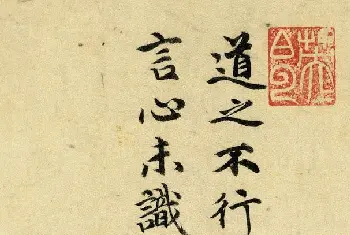 道之不行
言心未識